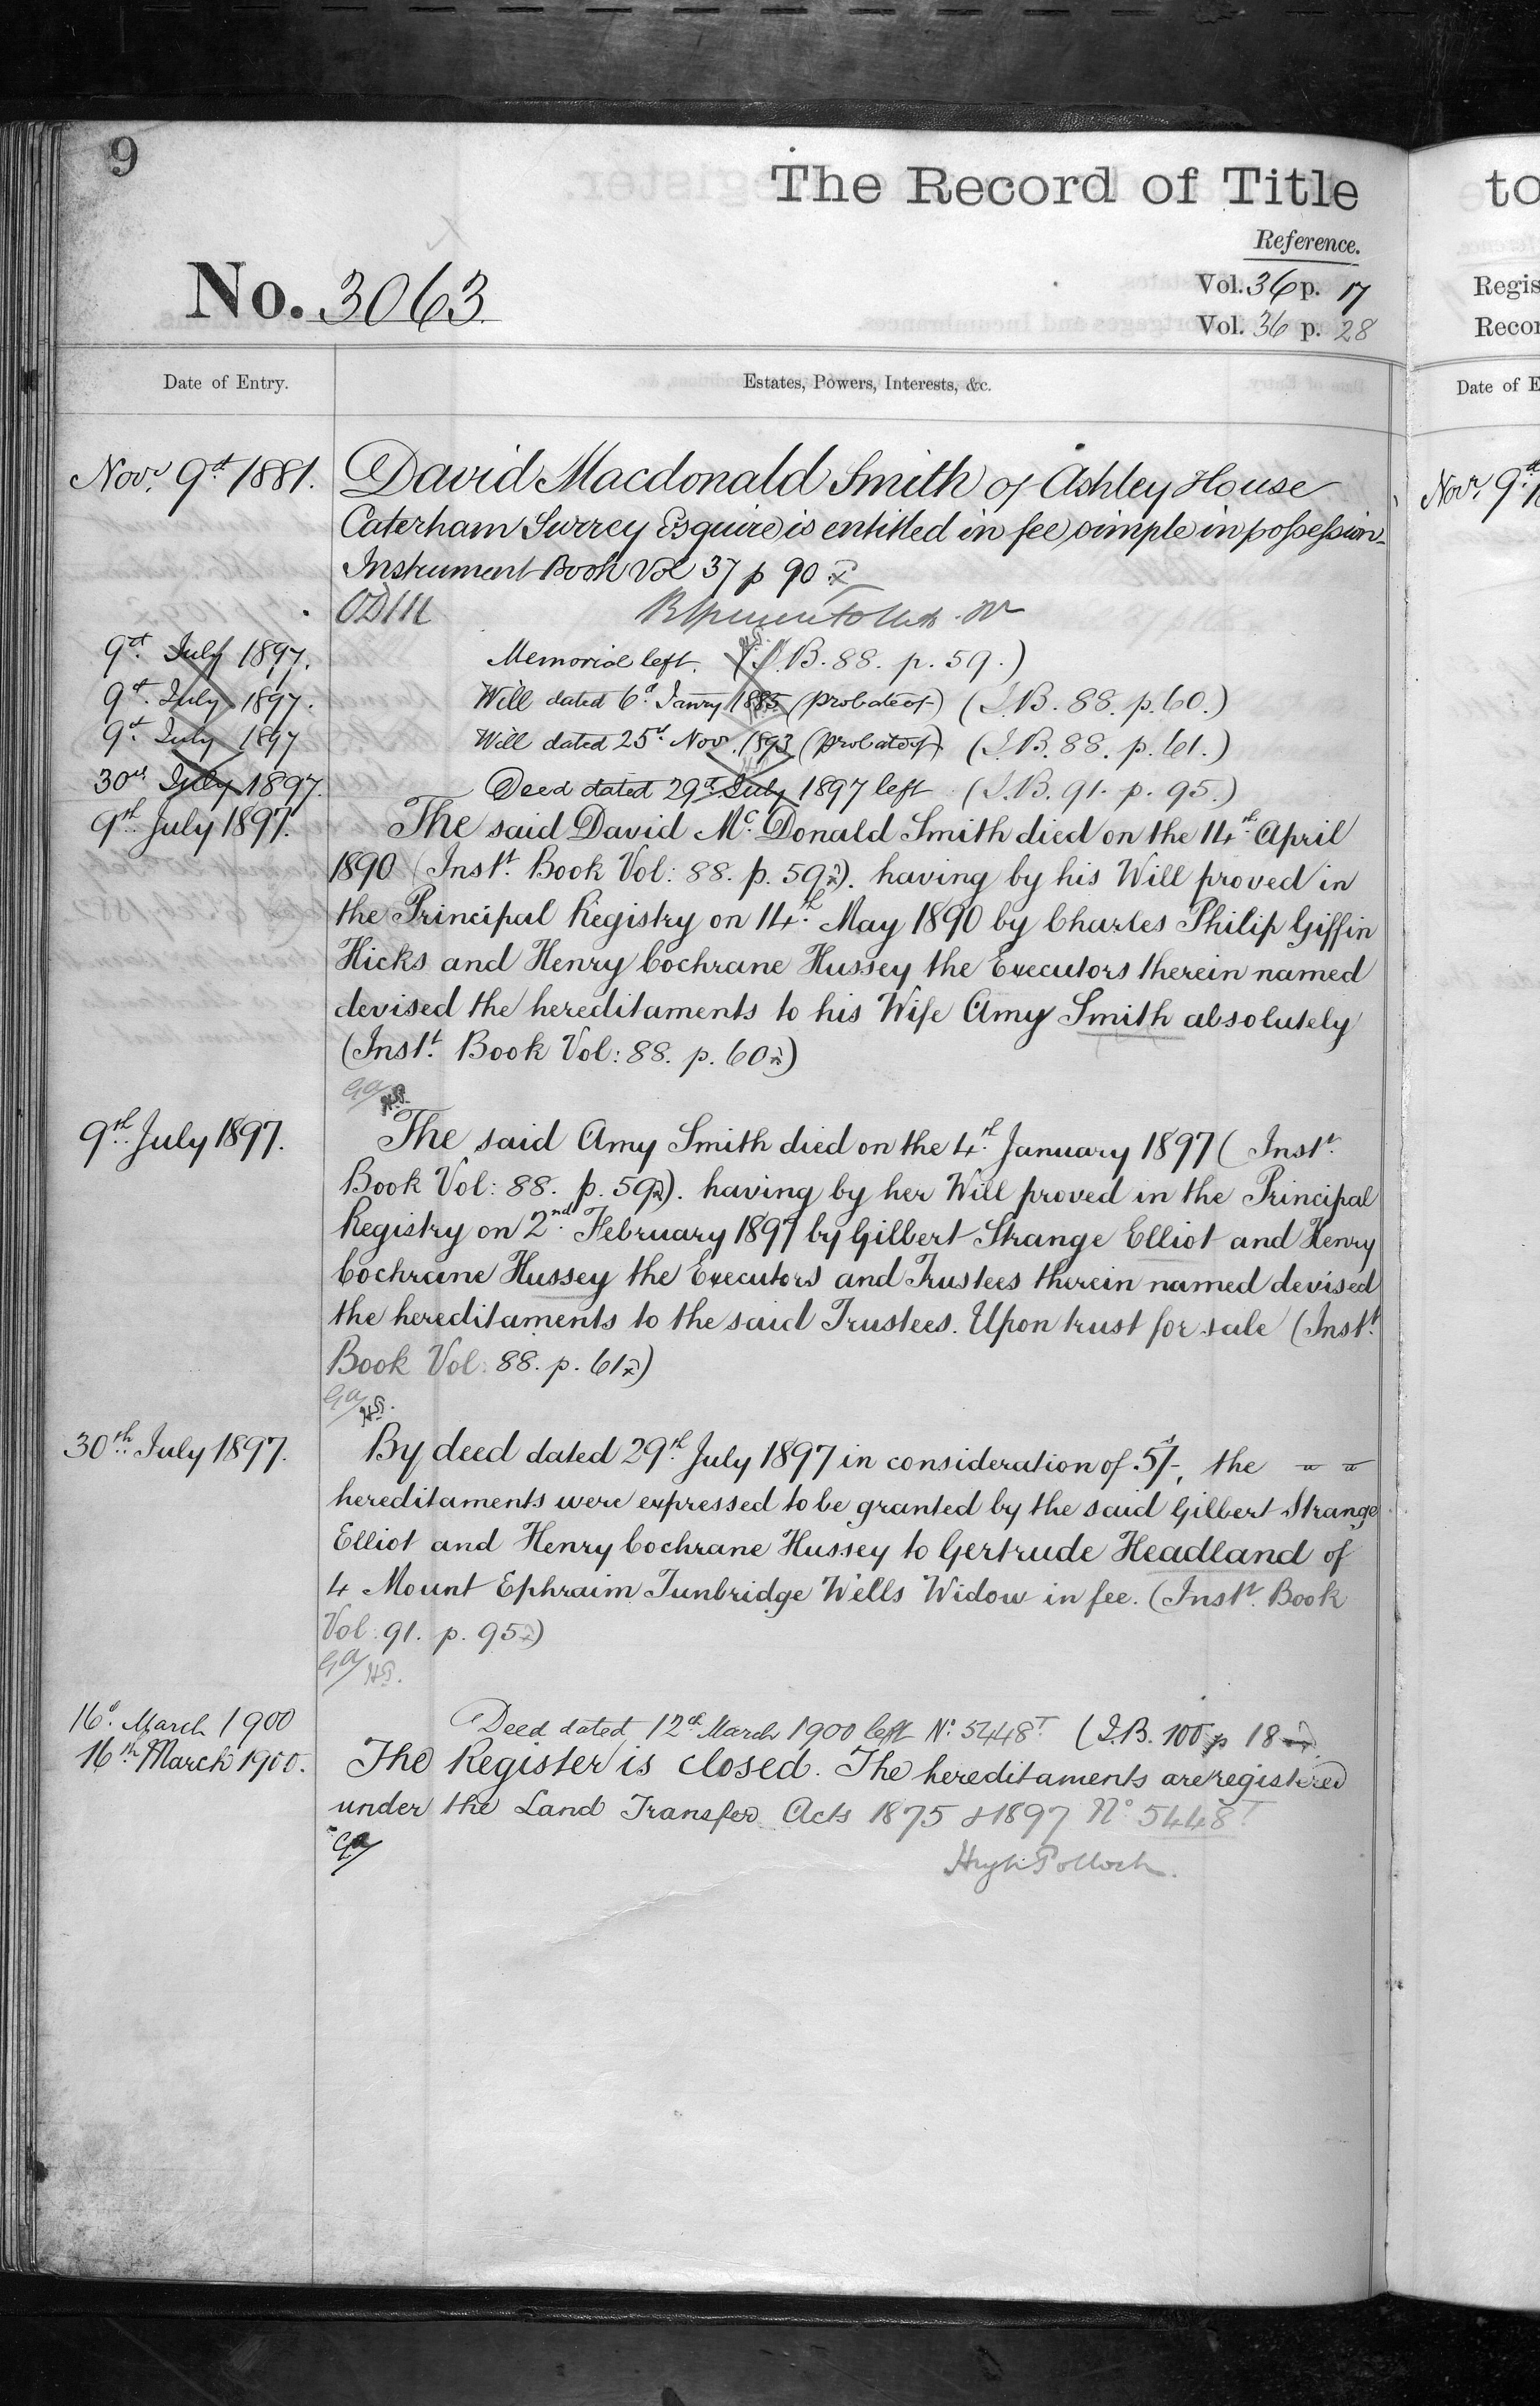 9
The Record of Title
Reference.
No. 3063
Vol. 36 p. 17
Vol. 36 p. 28
Date of Entry.
Estates, Powers, Interests, &c.
Novr. 9th 1881.
David Macdonald Smith of Ashley House
Caterham Surrey Esquire is entitled in fee simple in possession
Instrument Book Vol 37 p 90
9th July 1897.
Memorial left. (I.B. 88. p. 59.)
9th July 1897.
Will dated 6th Janry 1885 (probate of) (I.B. 88. p. 60.)
9th July 1897
Will dated 25th Nov. 1893 (probate of) (I.B. 88. p. 61.)
30th July 1897.
Deed dated 29th July 1897 left (I.B. 91. p. 95.)
9th July 1897.
The said David Mc. Donald Smith died on the 14th April
1890 (Instt. Book Vol: 88. p. 59). having by his Will proved in
the Principal Registry on 14th May 1890 by Charles Philip Giffin
Hicks and Henry Cochrane Hussey the Executors therein named
devised the hereditaments to his Wife Amy Smith absolutely
(Instt. Book Vol: 88. p. 60)
9th July 1897.
The said Amy Smith died on the 4th January 1897 (Instt.
Book Vol: 88. p. 59). having by her Will proved in the Principal
Registry on 2nd February 1897 by Gilbert Strange Elliot and Henry
Cochrane Hussey the Executors and Trustees therein named devised
the hereditaments to the said Trustees. Upon trust for sale (Instt.
Book Vol: 88. p. 61)
30th July 1897.
By deed dated 29th July 1897 in consideration of 5/-, the
hereditaments were expressed to be granted by the said Gilbert Strange
Elliot and Henry Cochrane Hussey to Gertrude Headland of
4 Mount Ephraim Tunbridge Wells Widow in fee. (Instt. Book
Vol. 91. p. 95)
16th March 1900
Deed dated 12th March 1900 left No. 5448T (I.B. 100 p 18
16th March 1900.
The Register is closed. The hereditaments are registered
under the Land Transfer Acts 1875 & 1897 No 5448T
Hugh Pollock.
to
Regis
Recor
Date of E
Novr. 9th